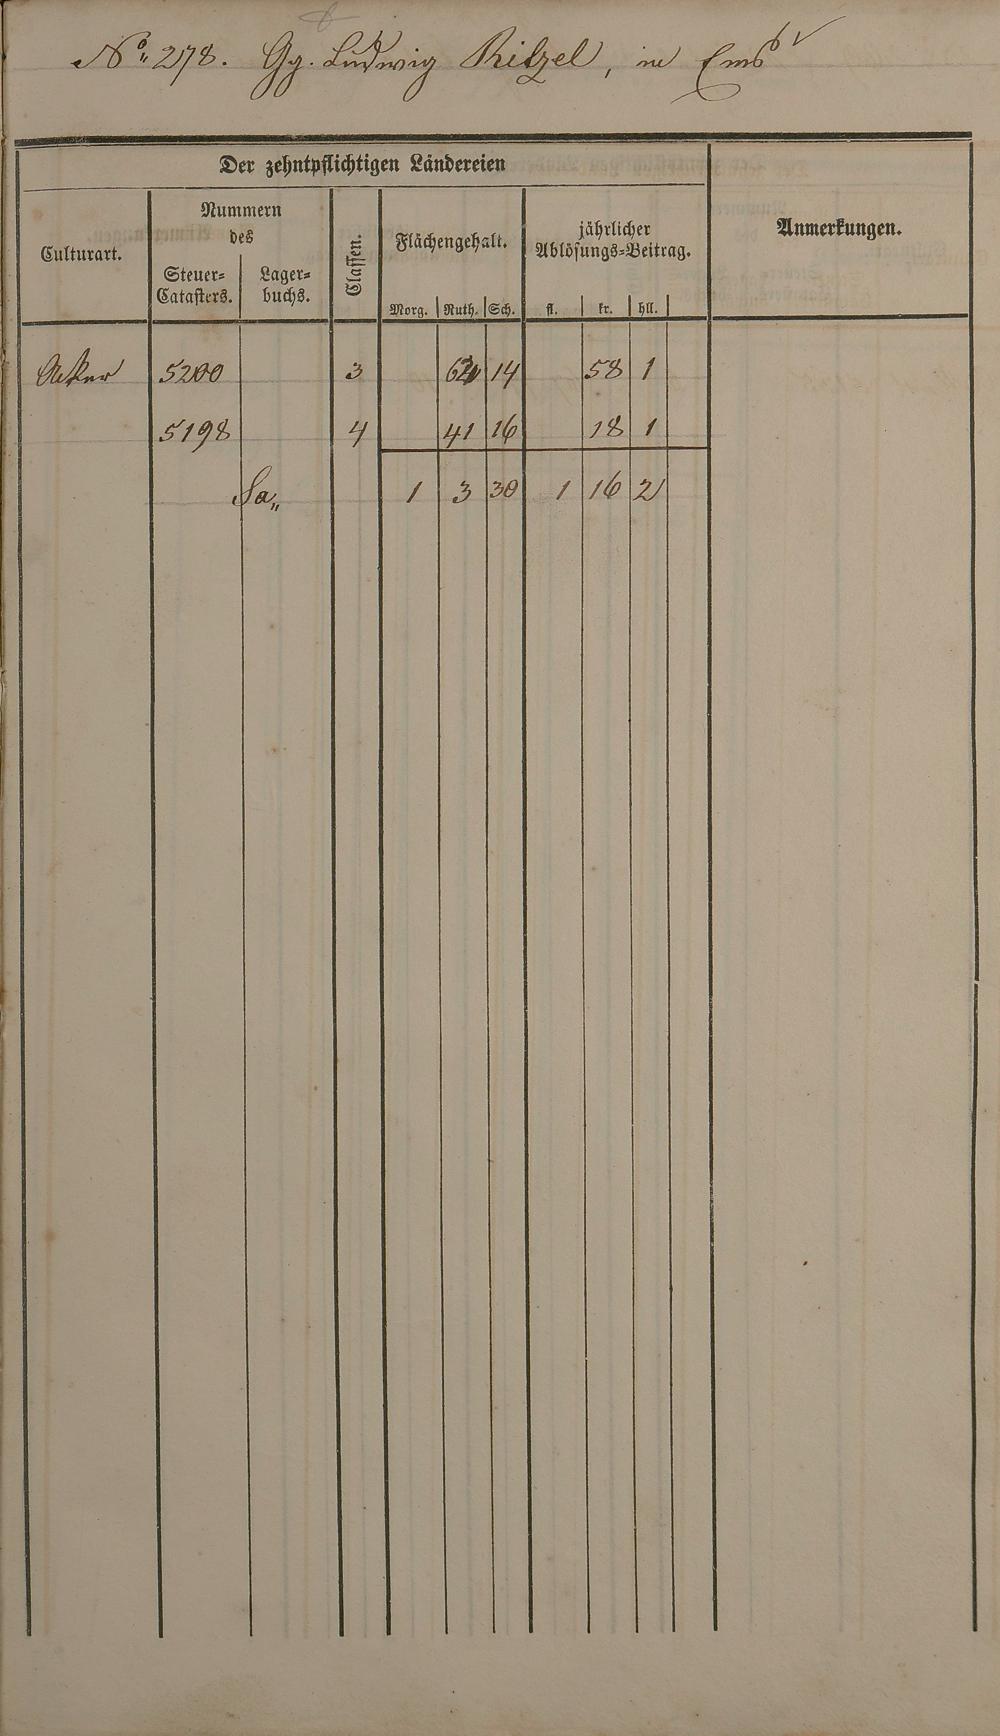 No. 278. Gg. Ludwig Ritzel, in Ems
Der zehntpflichtigen Ländereien
Culturart.
Nummern
des
Steuer=
Catasters.
Lager=
buchs.
Classen.
Flächengehalt.
Morg. Ruth. Sch.
jährlicher
Ablösungs=Beitrag.
fl. kr. hll.
Anmerkungen.
Acker 5200 3 62 14 58 1
5198 4 41 16 18 1
Sa„ 1 3 30 1 16 2